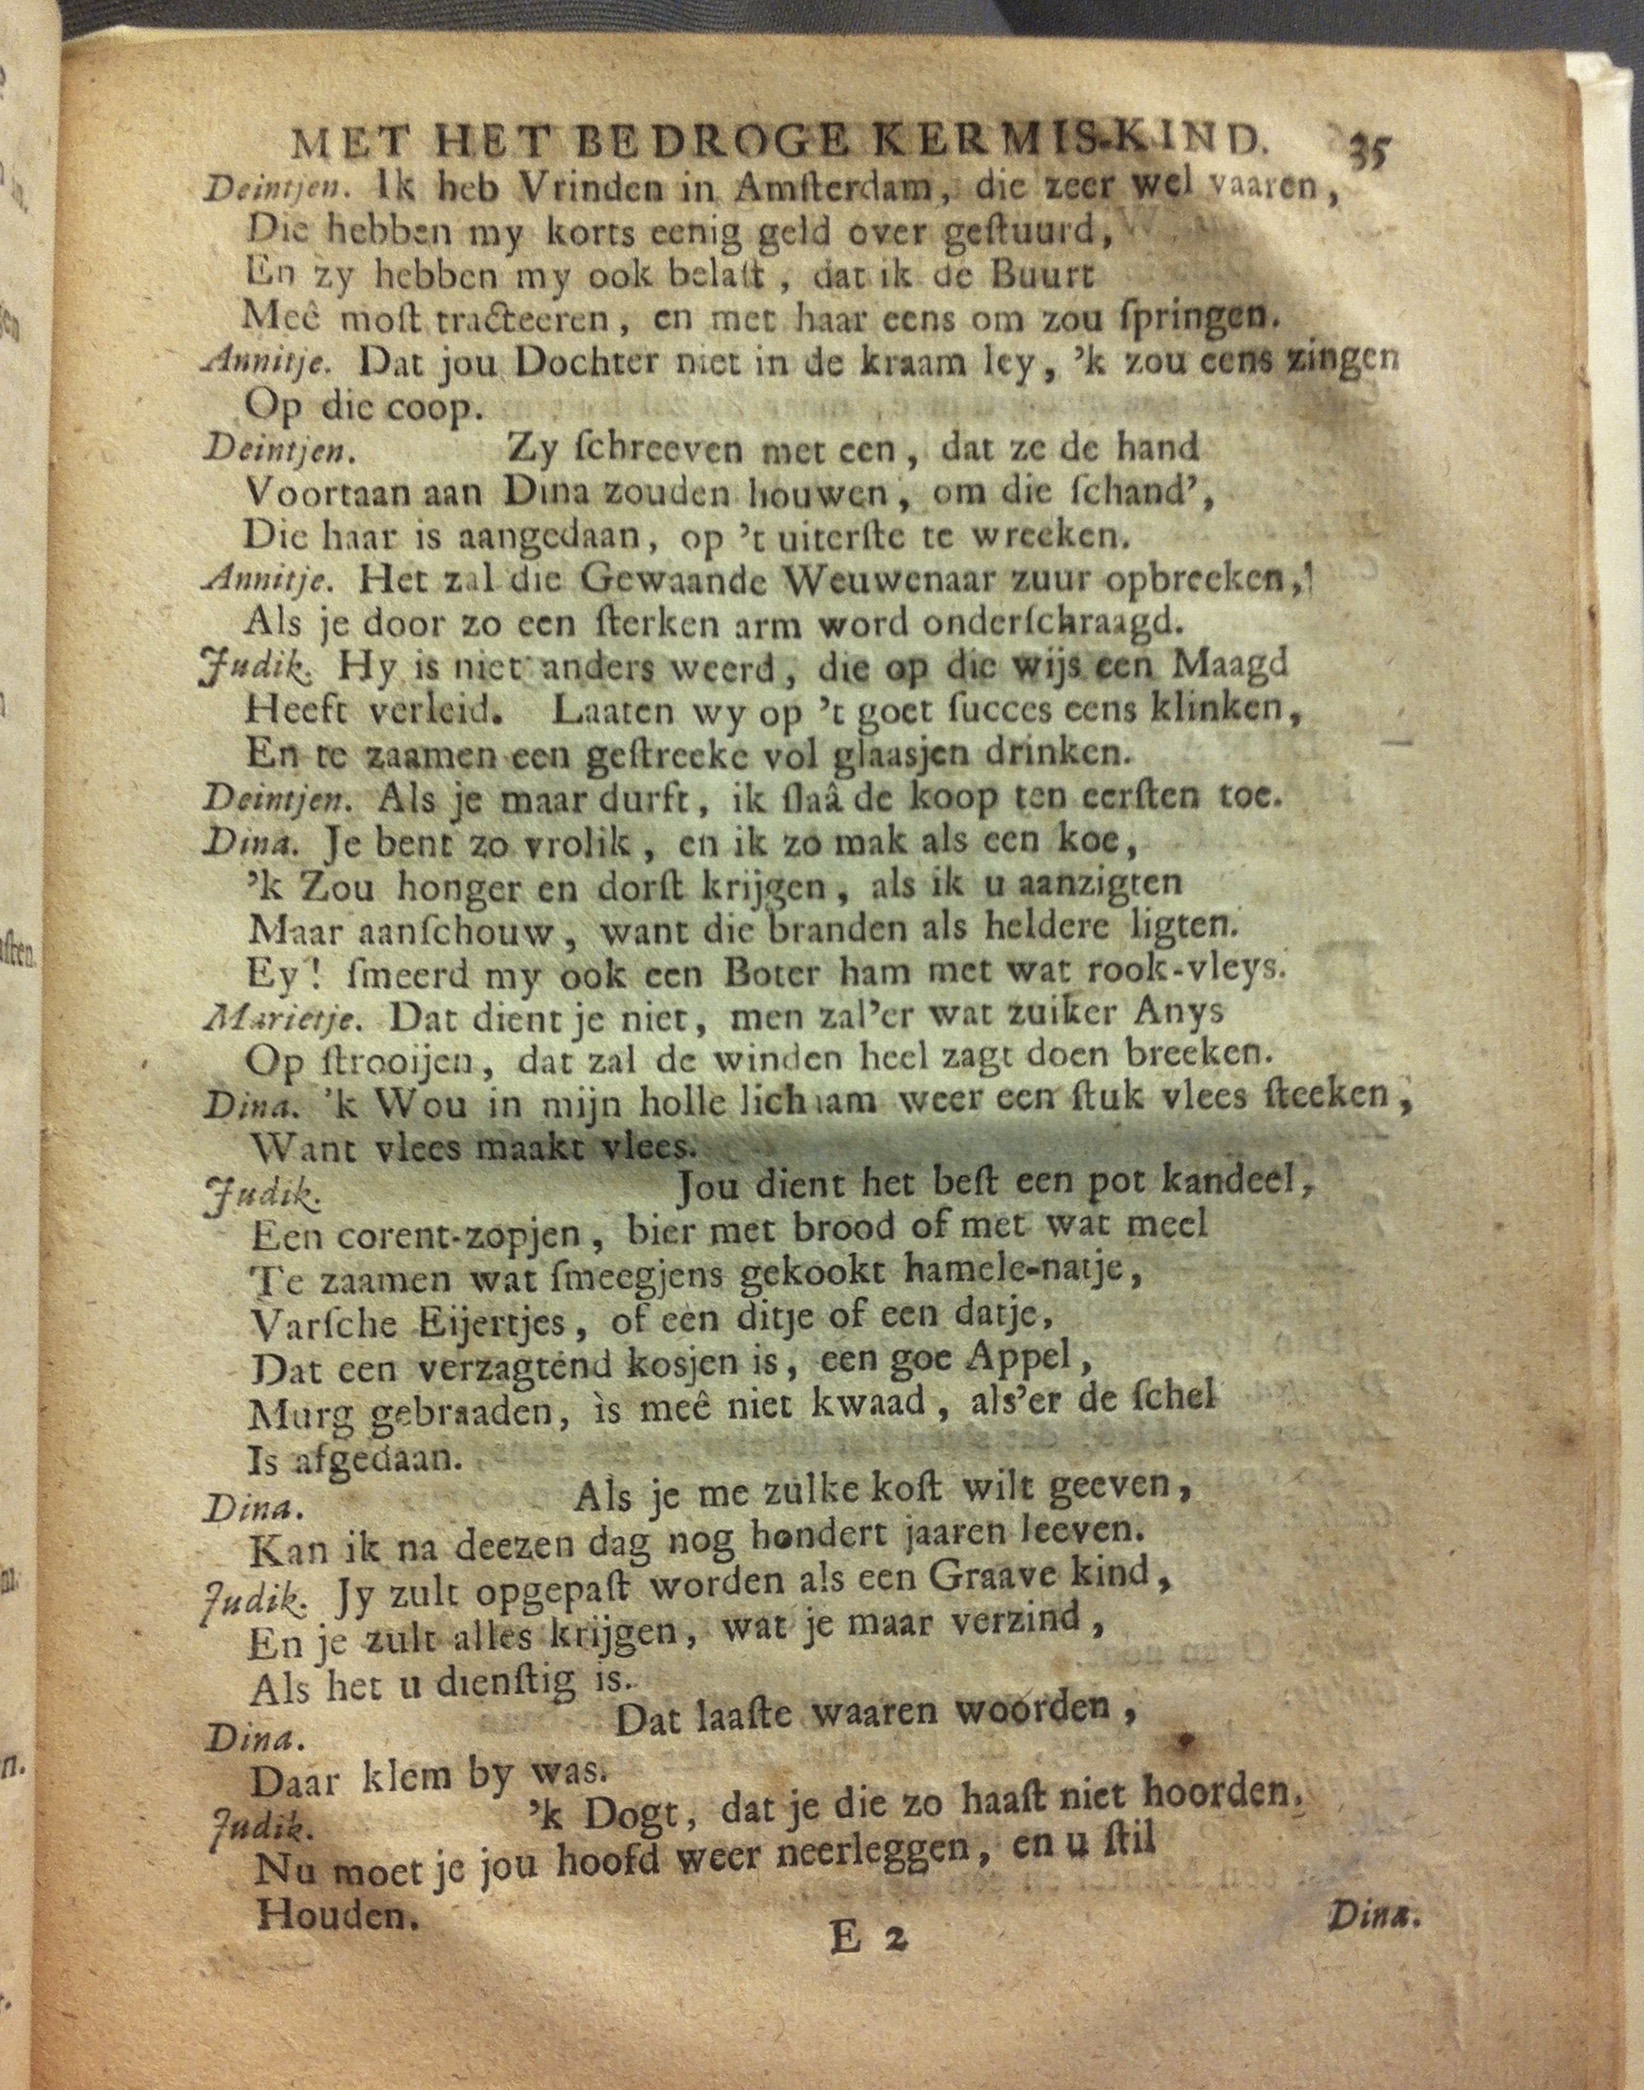 MET HET BEDROGE KERMIS-KIND. 35
Deintjen. Ik heb Vrinden in Amſterdam, die zeer wel vaaren,
Die hebben my korts eenig geld over geſtuurd,
En zy hebben my ook belaſt, dat ik de Buurt
Meê moſt tracteeren, en met haar eens om zou ſpringen.
Annitje. Dat jou Dochter niet in de kraam ley, 'k zou eens zingen
Op die coop.
Deintjen. Zy ſchreeven met een, dat ze de hand
Voortaan aan Dina zouden houwen, om die ſchand',
Die haar is aangedaan, op 't uiterſte te wreeken.
Annitje. Het zal die Gewaande Weuwenaar zuur opbreeken,
Als je door zo een ſterken arm word onderſchraagd.
Judik. Hy is niet anders weerd, die op die wijs een Maagd
Heeft verleid. Laaten wy op 't goet ſucces eens klinken,
En te zaamen een geſtreeke vol glaasjen drinken.
Deintjen. Als je maar durft, ik ſlaâ de koop ten eerſten toe.
Dina. Je bent zo vrolik, en ik zo mak als een koe,
'k Zou honger en dorſt krijgen, als ik u aanzigten
Maar aanſchouw, want die branden als heldere ligten.
Ey! ſmeerd my ook een Boter ham met wat rook-vleys.
Marietje. Dat dient je niet, men zal'er wat zuiker Anys
Op ſtrooijen, dat zal de winden heel zagt doen breeken.
Dina. 'k Wou in mijn holle lichaam weer een ſtuk vlees ſteeken,
Want vlees maakt vlees.
Judik. Jou dient het beſt een pot kandeel,
Een corent-zopjen, bier met brood of met wat meel
Te zaamen wat ſmeegjens gekookt hamele-natje,
Varſche Eijertjes, of een ditje of een datje,
Dat een verzagtend kosjen is, een goe Appel,
Murg gebraaden, is meê niet kwaad, als'er de ſchel
Is afgedaan.
Dina. Als je me zulke koſt wilt geeven,
Kan ik na deezen dag nog hondert jaaren leeven.
Judik. Jy zult opgepaſt worden als een Graave kind,
En je zult alles krijgen, wat je maar verzind,
Als het u dienſtig is.
Dina. Dat laaſte waaren woorden,
Daar klem by was.
Judik. 'k Dogt, dat je die zo haaſt niet hoorden.
Nu moet je jou hoofd weer neerleggen, en u ſtil
Houden.
E 2 Dina.